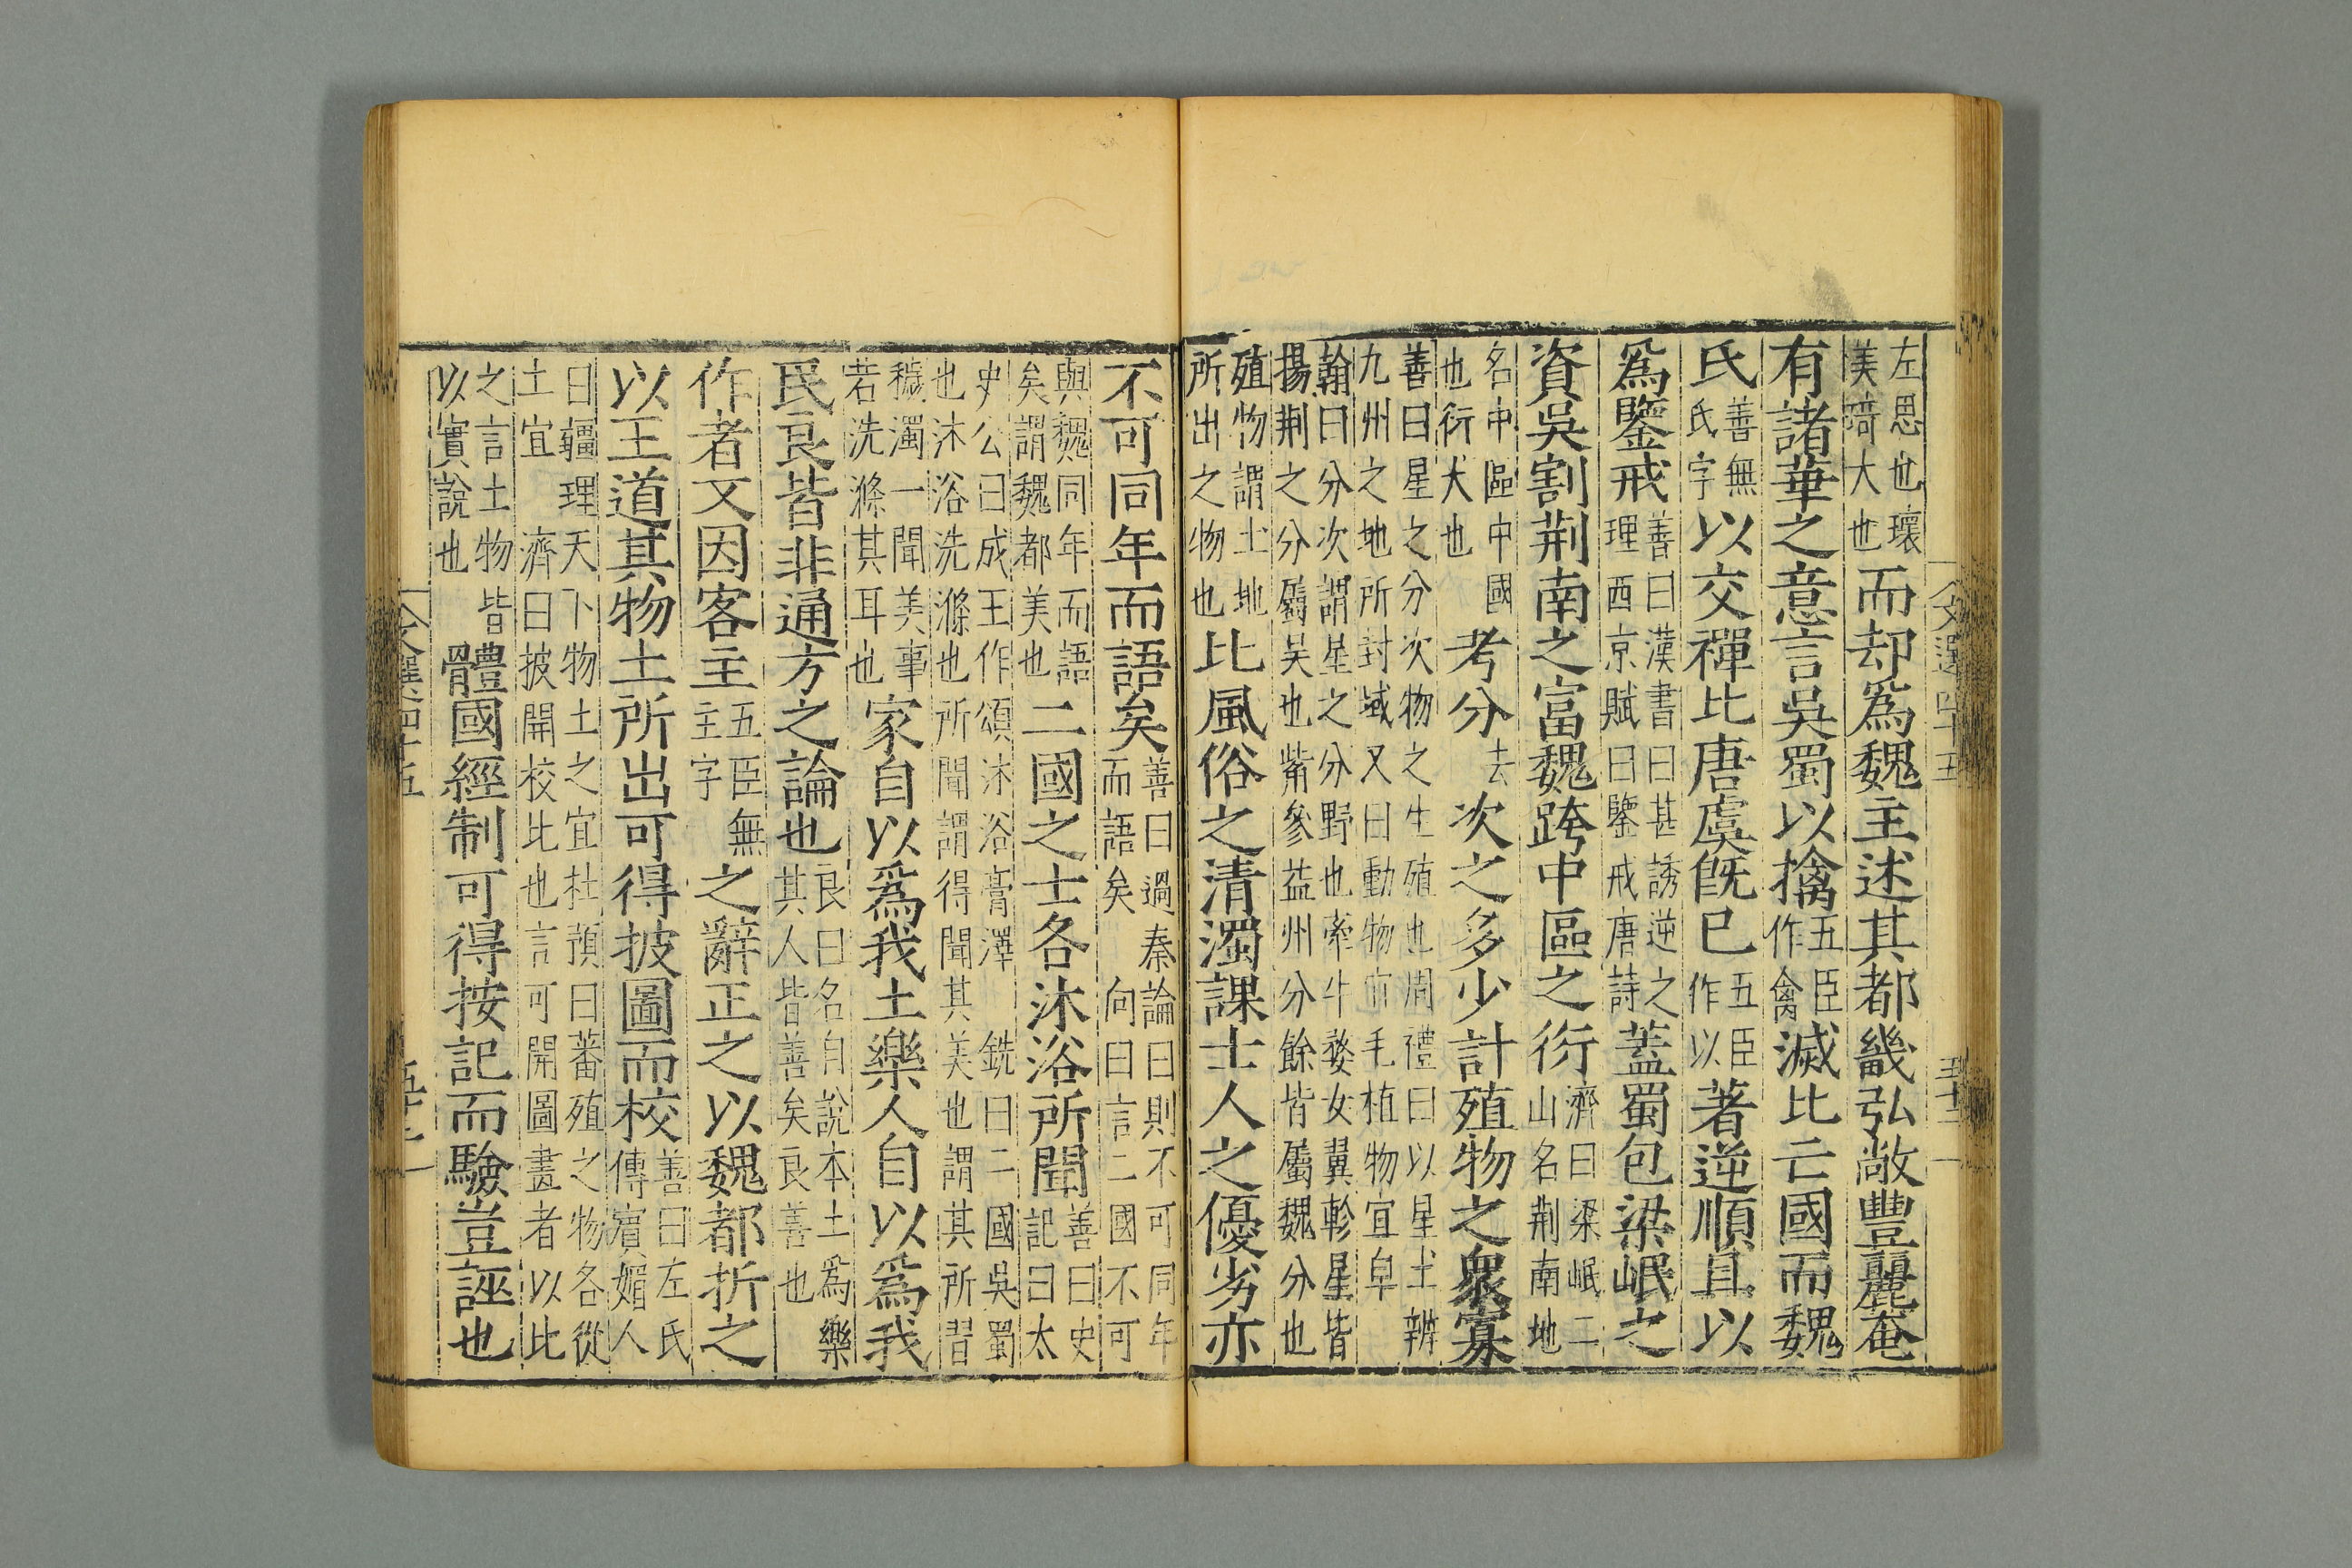 左思也瓌
美琦大也
而却爲魏主述其都畿弘敞豐麗奄
有諸華之意言吳蜀以擒
五臣
作禽
滅比亡國而魏
氏
善無
氏字
以交禪比唐虞旣已
五臣
作以
著逆順且以
爲鑒戒
善曰漢書曰甚誘逆之
理西京賦曰鑒戒唐詩
蓋蜀包梁岷之
資吳割荆南之富魏跨中區之衍
濟曰梁岷二
山名荆南地
名中區中國
也衍大也
考分
去
次之多少計殖物之衆寡
善曰星之分次物之生殖也周禮曰以星土辨
九州之地所封域又曰動物宜毛植物宜阜
翰曰分次謂星之分野也牽牛婺女翼軫星皆
揚荆之分屬吳也觜參益州分餘皆屬魏分也
殖物謂土地
所出之物也
比風俗之清濁課士人之優劣亦
文選四十五
五十二
不可同年而語矣
善曰過秦論曰則不可同年
而語矣 向曰言二國不可
與魏同年而語
矣謂魏都美也
二國之士各沐浴所聞
善曰史
記曰太
史公曰成王作頌沐浴膏澤 銑曰二國吳蜀
也沐浴洗滌也所聞謂得聞其美也謂其所習
穢濁一聞美事
若洗滌其耳也
家自以爲我土樂人自以爲我
民良皆非通方之論也
良曰名自說本土爲樂
其人皆善矣良善也
作者又因客主
五臣無
主字
之辭正之以魏都折之
以王道其物土所出可得披圖而校
善曰左氏
傳賓媚人
曰疆理天下物土之宜杜預曰蕃殖之物各從
土宜 濟曰披開校比也言可開圖畫者以比
之言土物皆
以實說也
體國經制可得按記而驗豈誣也
文選四十五